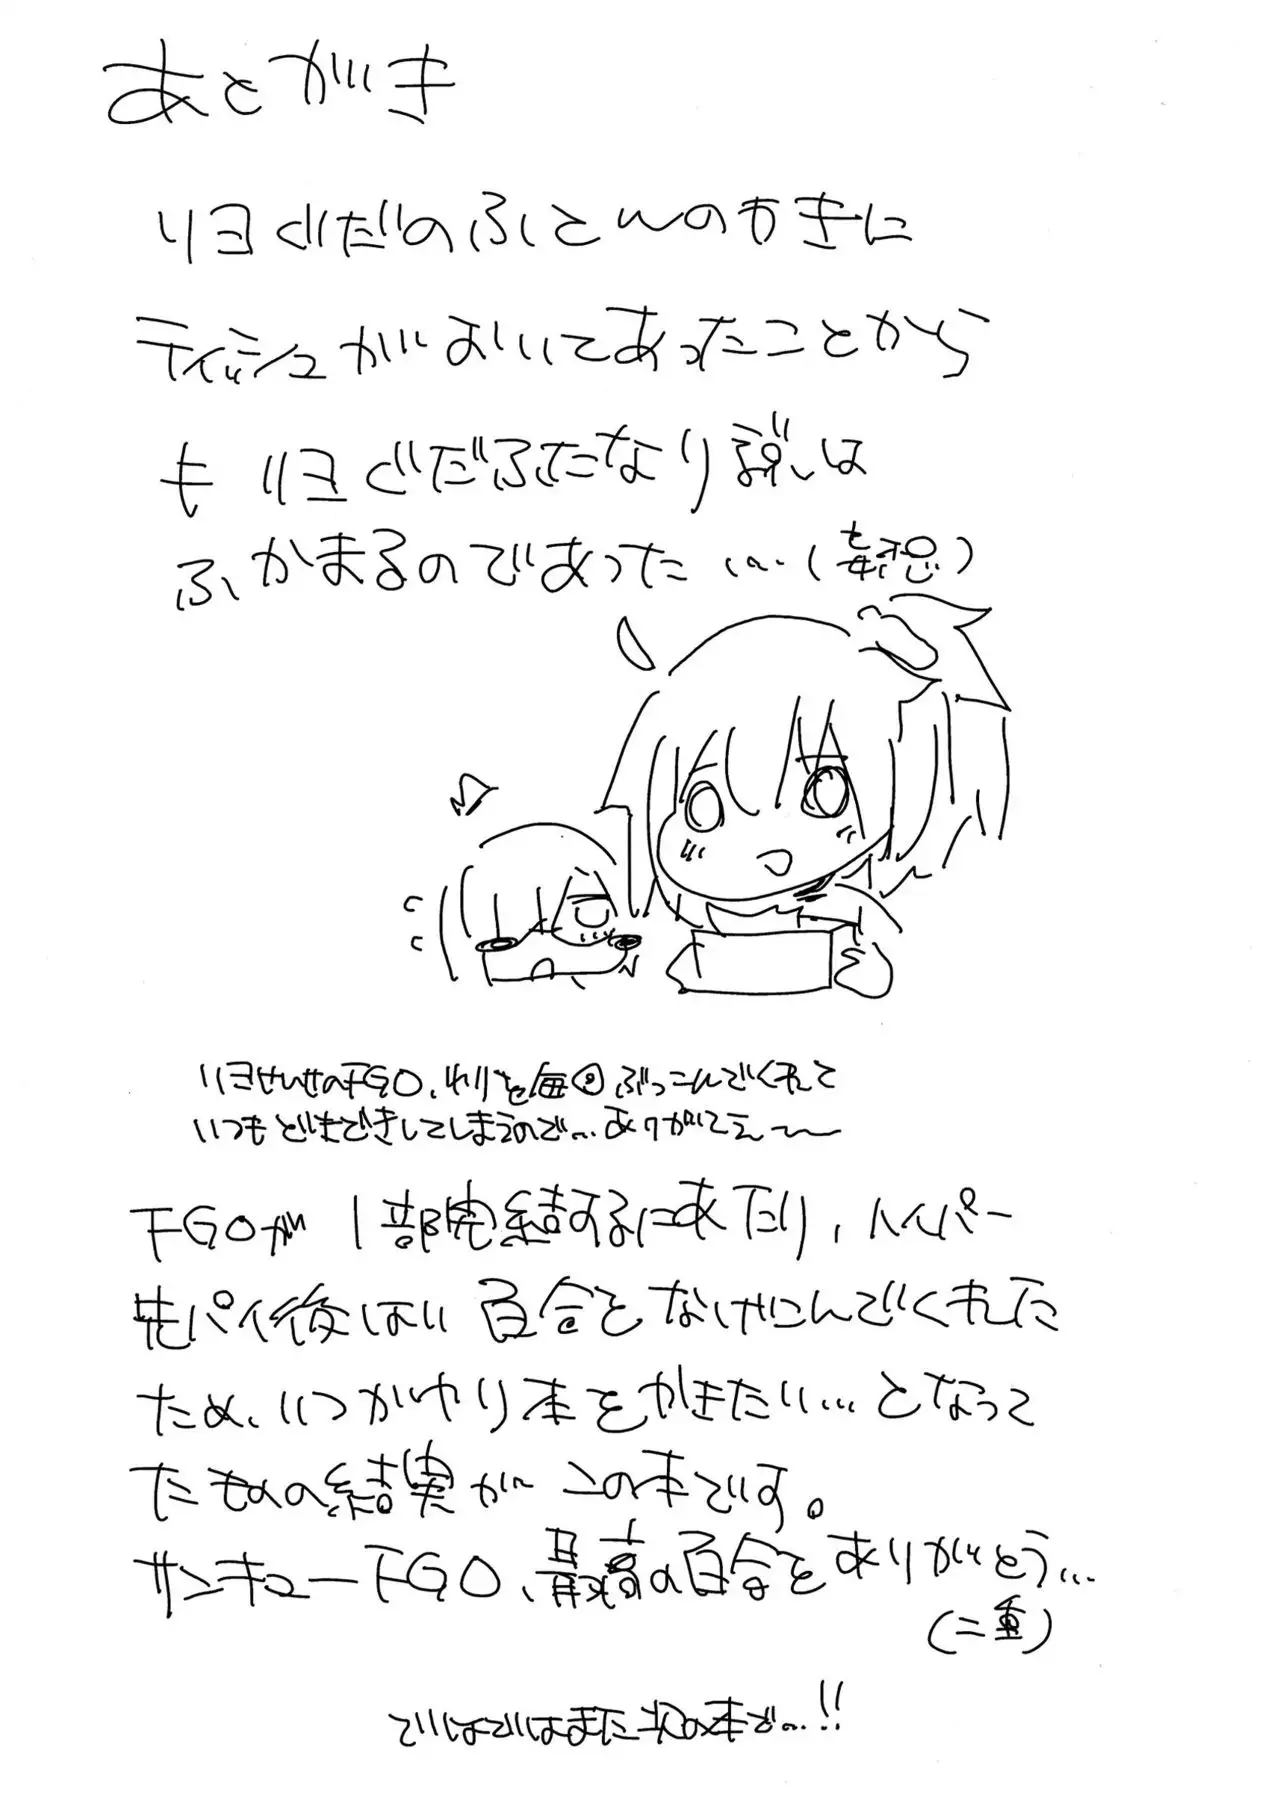 あとがき
リヨぐだのふとんのわきに
ティッシュがおいてあったことから
も リヨぐだふたなり説は
ふかまるのであった…(妄想)
リヨせんせのFGO、わりと毎回ぶっこんでくれて
いつもどきどきしてしまうので…ありがてえ〜
FGOが1部完結するにあたり、ハイパー
先パイ後はい百合をなげこんでくれた
ため、いつかやり本をかきたい…となって
たものの結実がこの本です。
サンキューFGO、最高の百合をありがとう…
(二重)
ではではまた次の本で…!!